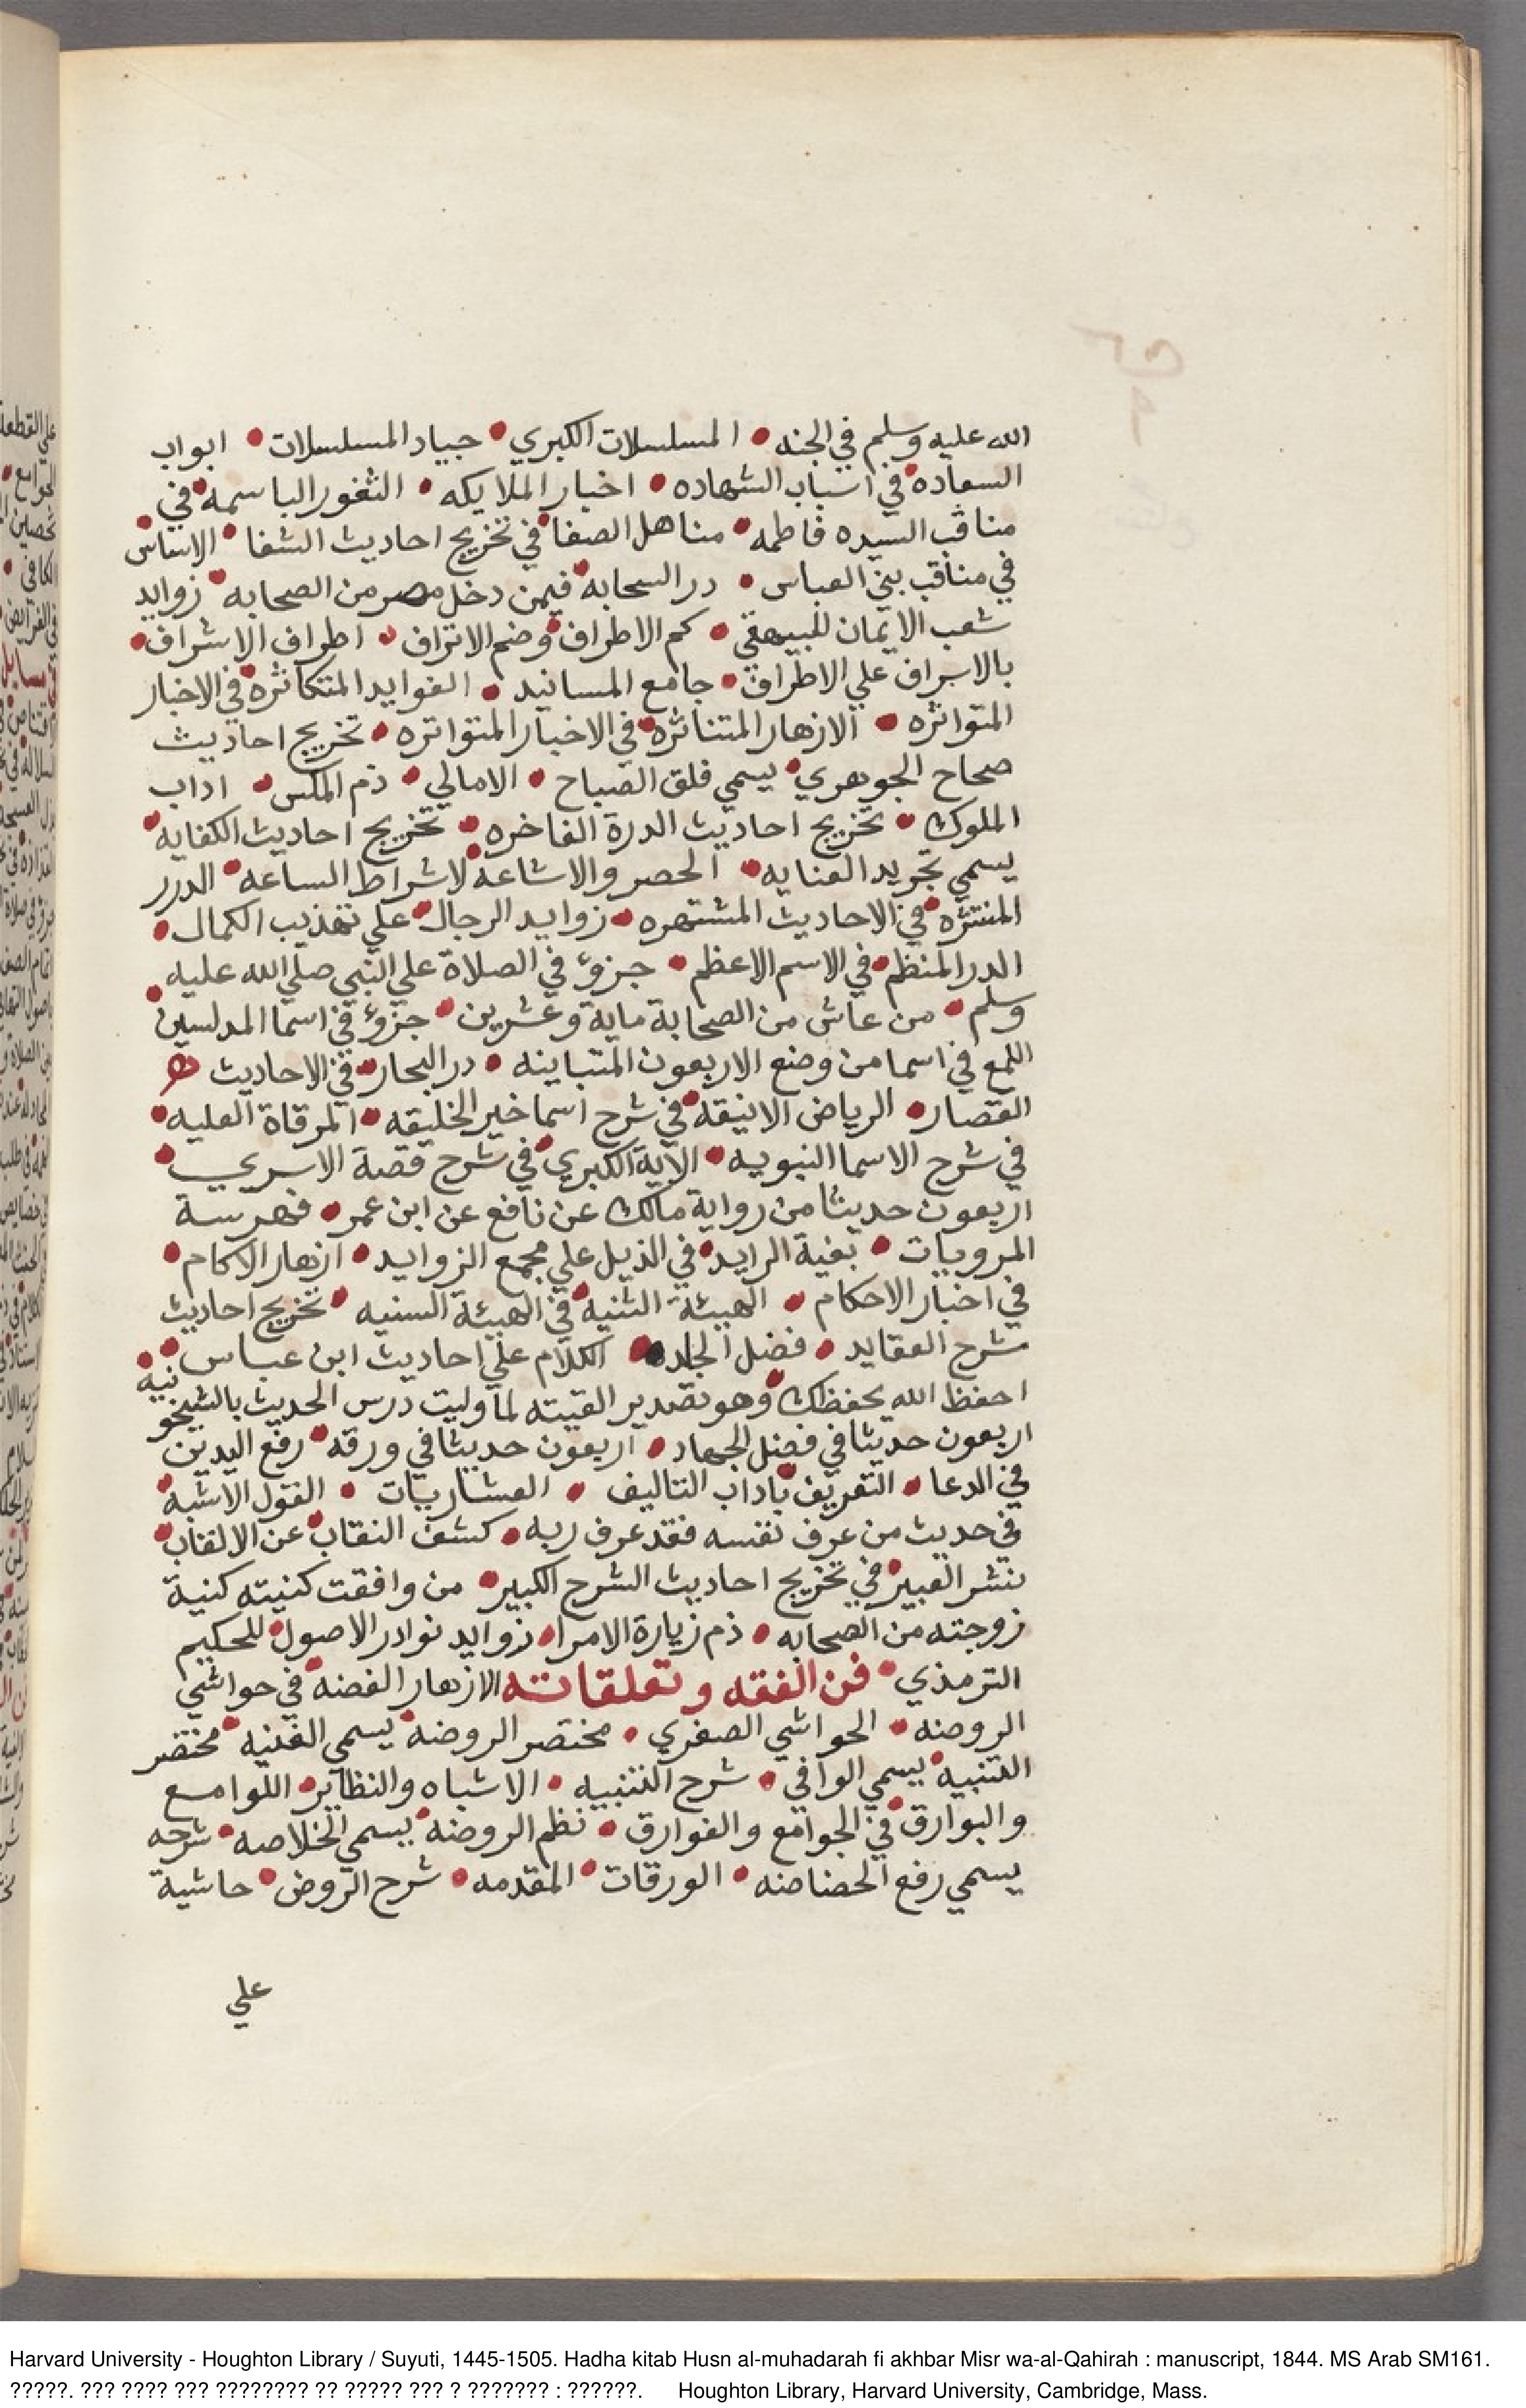 الله عليه وسلم في الجنه • المسلسلات الكبري • جياد المسلسلات • ابواب
السعاده في اسباب الشهاده • اخبار الملايكه • الثغور الباسمه في
مناقب السيده فاطمه • مناهل الصفا في تخريج احاديث الشفا • الاساس
في مناقب بني العباس • در السحابه فيمن دخل مصر من الصحابه • زوايد
شعب الايمان للبيهقي • كم الاطراف وضم الاتراف • اطراف الاشراف •
بالاسراف علي الاطراف • جامع المسانيد • الفوايد المتكاثره في الاخبار
المتواثره • الازهار المتناثره في الاخبار المتواتره • تخريج احاديث
صحاح الجوهري • يسمي فلق الصباح • الامالي • ذم المكس • اداب
الملوك • تخريج احاديث الدرة الفاخره • تخريج احاديث الكفايه •
يسمي تجريد العنايه • الحصر والاشاعه لاشراط الساعه • الدرر
المنتثره في الاحاديث المشتهره • زوايد الرجال • علي تهذيب الكمال •
الدر المنظم • في الاسم الاعظم • جزؤ في الصلاة علي النبي صلي الله عليه
وسلم • من عاش من الصحابة ماية وعشرين • جزؤ في اسما المدلسين •
اللمع في اسما من وضع الاربعون المتباينه • در البحار • في الاحاديث ه
القصار • الرياض الانيقه • في شرح اسما خير الخليقه • المرقاة العليه •
في شرح الاسما النبويه • الاية الكبري في شرح قصة الاسري •
اربعون حديثا من رواية مالك عن نافع عن ابن عمر • فهرسة
المرويات • بغية الرايد • في الذيل علي مجمع الزوايد • ازهار الاكام •
في اخبار الاحكام • الهيئة الثنيه • في الهيئة السنيه • تخريج احاديث
شرح العقايد • فضل الجلد • الكلام علي احاديث ابن عباس •
احفظ الله يحفظك • وهو تصدير القيته لما وليت درس الحديث بالشيخونيه •
اربعون حديثا في فضل الجهاد • اربعون حديثا في ورقه • رفع اليدين
في الدعا • التعريف باداب التاليف • العشاريات • القول الاشبه •
في حديث من عرف نفسه فقد عرف ربه • كشف النقاب عن الالقاب •
نشر العبير • في تخريج احاديث الشرح الكبير • من وافقت كنيته كنية
زوجته من الصحابه • ذم زيارة الامرا • زوايد نوادر الاصول • للحكيم
الترمذي • فن الفقه وتعلقاته الازهار الغضه في حواشي
الروضه • الحواشي الصغري • مختصر الروضه يسمي الغنيه • مختصر
التنبيه • يسمي الوافي • شرح التنبيه • الاشباه والنظاير • اللوامع
والبوارق • في الجوامع والفوارق • نظم الروضه يسمي الخلاصه • شرحه
يسمي رفع الخصاصه • الورقات • المقدمه • شرح الروض • حاشية
علي
Harvard University - Houghton Library / Suyuti, 1445-1505. Hadha kitab Husn al-muhadarah fi akhbar Misr wa-al-Qahirah : manuscript, 1844. MS Arab SM161.
?????. ??? ???? ??? ???????? ?? ????? ??? ? ??????? : ??????. Houghton Library, Harvard University, Cambridge, Mass.